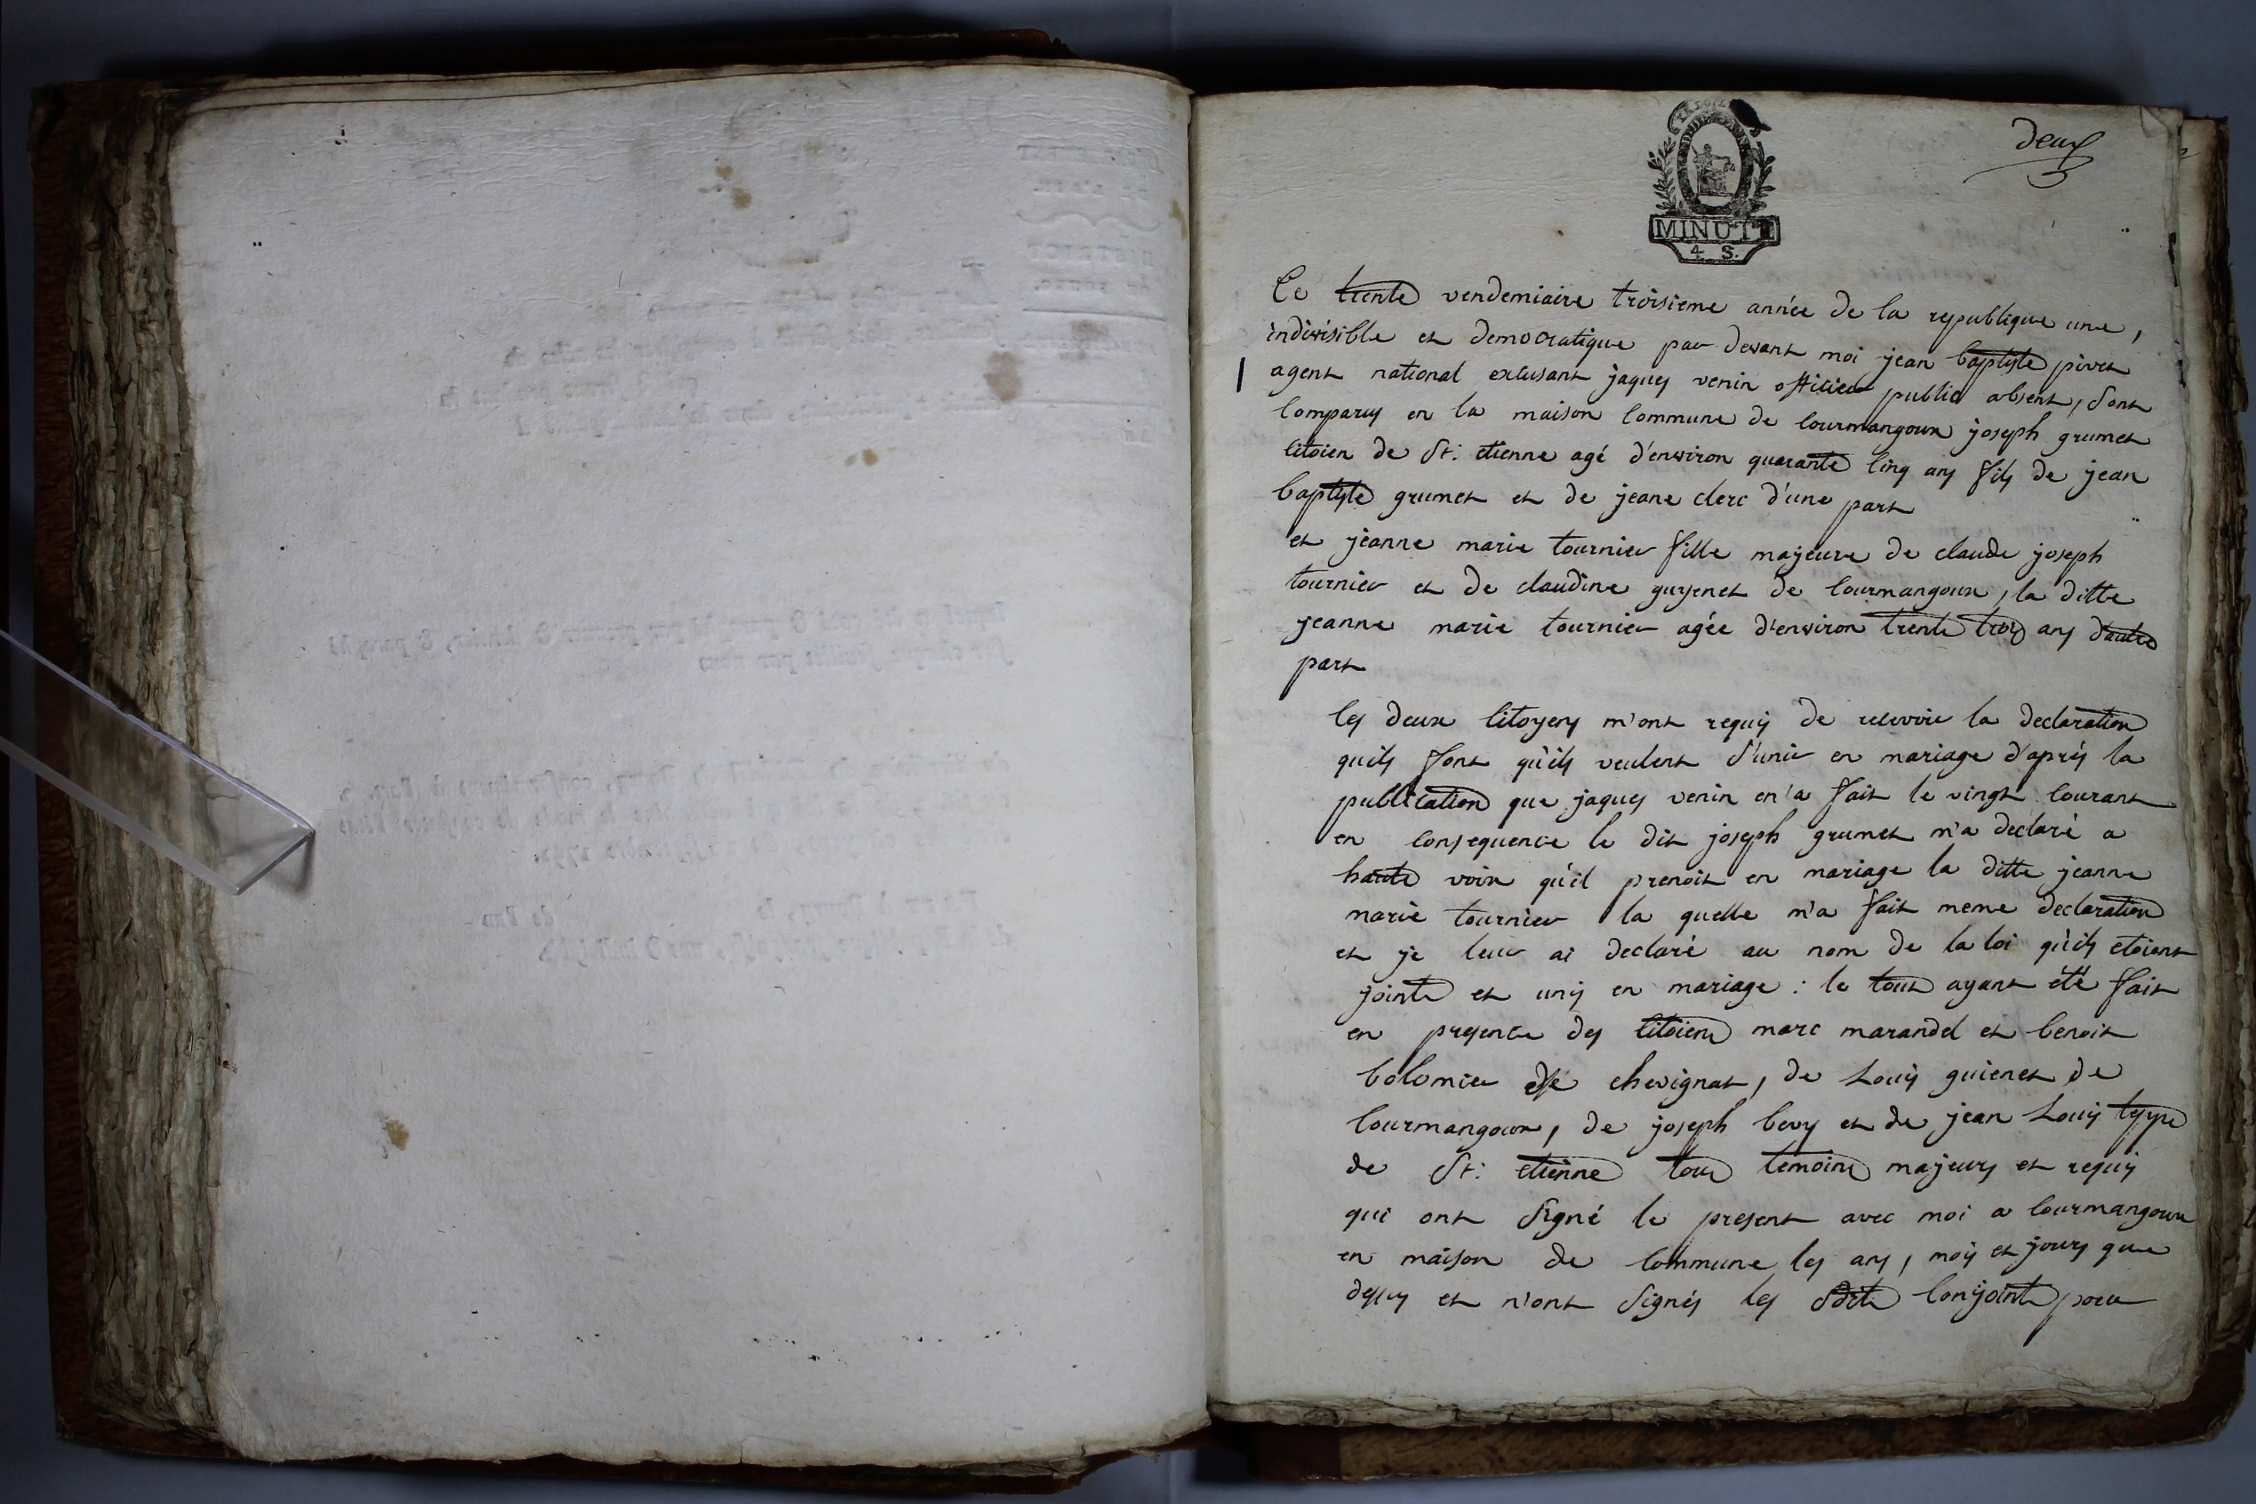 deux
MINUTE
4 S.
Ce trente vendemiaire troisieme année de la republique une,
indivisible et democratique par devant moi jean baptiste pivet
agent national excusant jaques venin officier public absent, sont
comparus en la maison commune de courmangoux joseph grumet
citoien de St: etienne agé d'environ quarante cinq ans fils de jean
baptiste grumet et de jeane clerc d'une part
et jeanne marie tournier fille majeure de claude joseph
tournier et de claudine guyenet de courmangoux, la ditte
jeanne marie tournier agée d'environ trente trois ans d'autre
part
les deux citoyens m'ont requis de recevoir la declaration
quils font qu'ils veulent s'unir en mariage d'aprés la
publication que jaques venin en a fait le vingt courant
en consequence le dit joseph grumet m'a declaré a
haute voix qu'il prenoit en mariage la ditte jeanne
marie tournier la quelle m'a fait meme declaration
et je leur ai declaré au nom de la loi qu'ils etoient
joints et unis en mariage : le tout ayant été fait
en presence des citoiens marc marandel et benoit
bolomier de chevignat, de Louis guienet de
courmangoux, de joseph bevy et de jean Louis
de St: etienne tous temoins majeurs et requis
qui ont signé le present avec moi a courmangoux
en maison de commune les ans, mois et jours que
dessus et n'ont signés les sdits conjoints pour